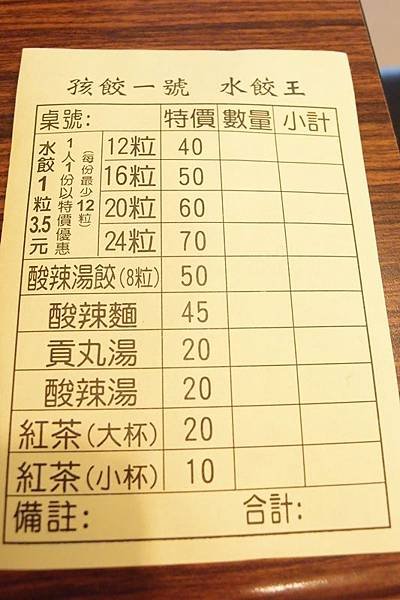 孩餃一號 水餃王
桌號: 特價 數量 小計
水餃1粒3.5元
1人1份以特價優惠
(每份最少12粒)
12粒 40
16粒 50
20粒 60
24粒 70
酸辣湯餃(8粒) 50
酸辣麵 45
貢丸湯 20
酸辣湯 20
紅茶(大杯) 20
紅茶(小杯) 10
備註: 合計: